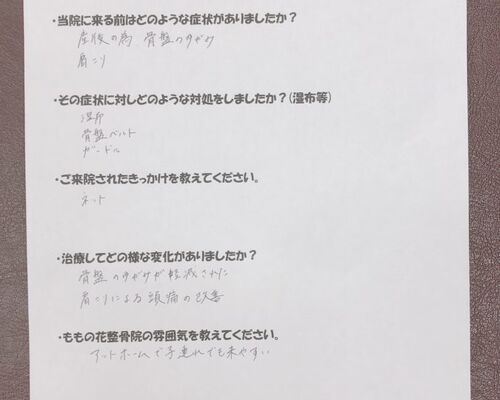 ・当院に来る前はどのような症状がありましたか？
産後の為 骨盤のゆがみ
肩こり
・その症状に対しどのような対処をしましたか？(湿布等)
湿布
骨盤ベルト
ガードル
・ご来院されたきっかけを教えてください。
ネット
・治療してどの様な変化がありましたか？
骨盤のゆがみが軽減された
肩こりによる頭痛の改善
・ももの花整骨院の雰囲気を教えてください。
アットホームで子連れでも来やすい